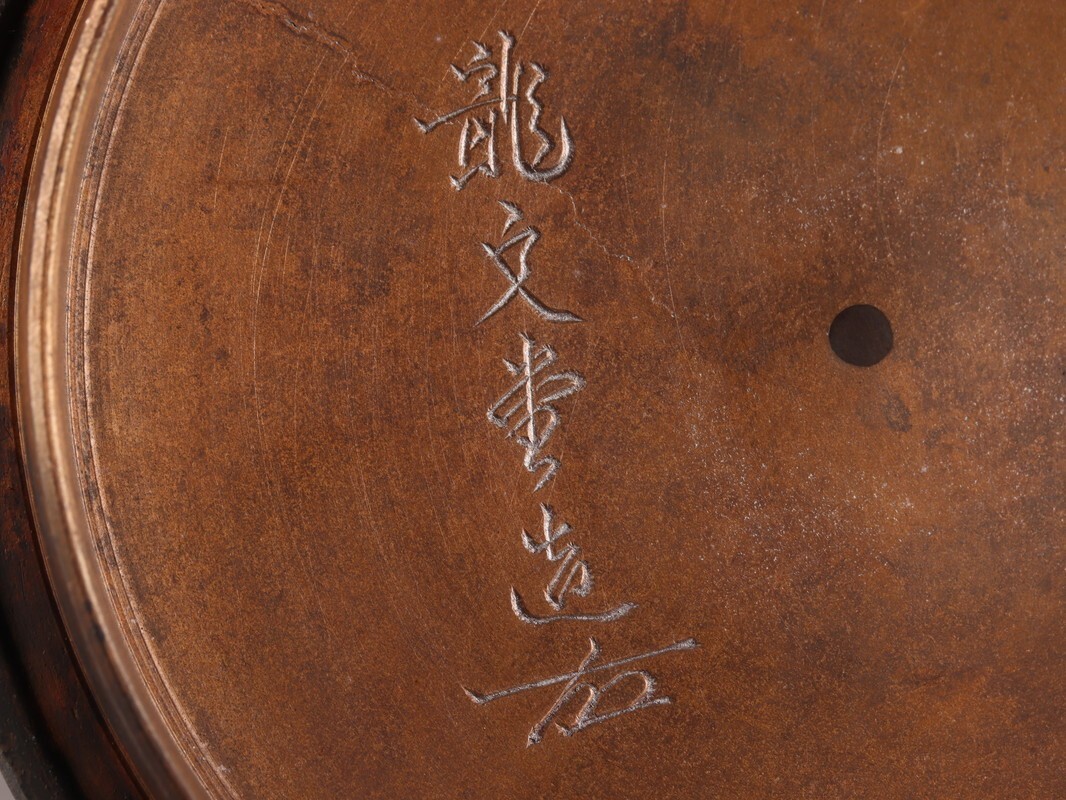 龍文堂造右